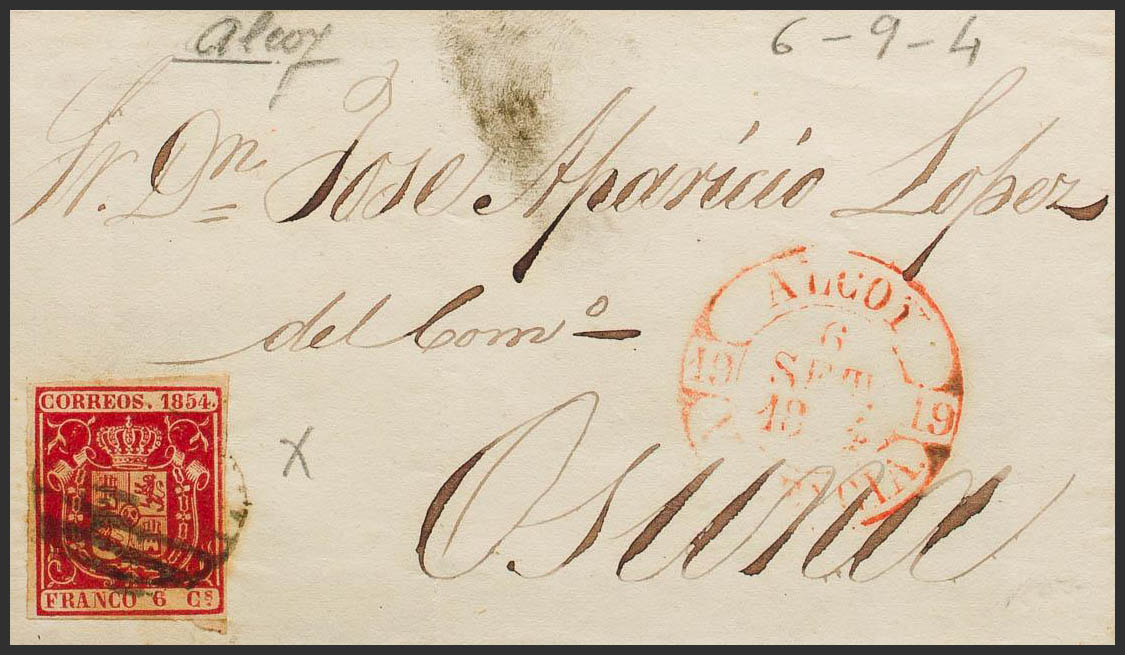 Alcoy
6-9-4
Sr. Dn. Jose Aparicio Lopez
del Comº
Osuna
ALCOY
6
SET.
19
19
CORREOS. 1854.
FRANCO 6 Cs
X